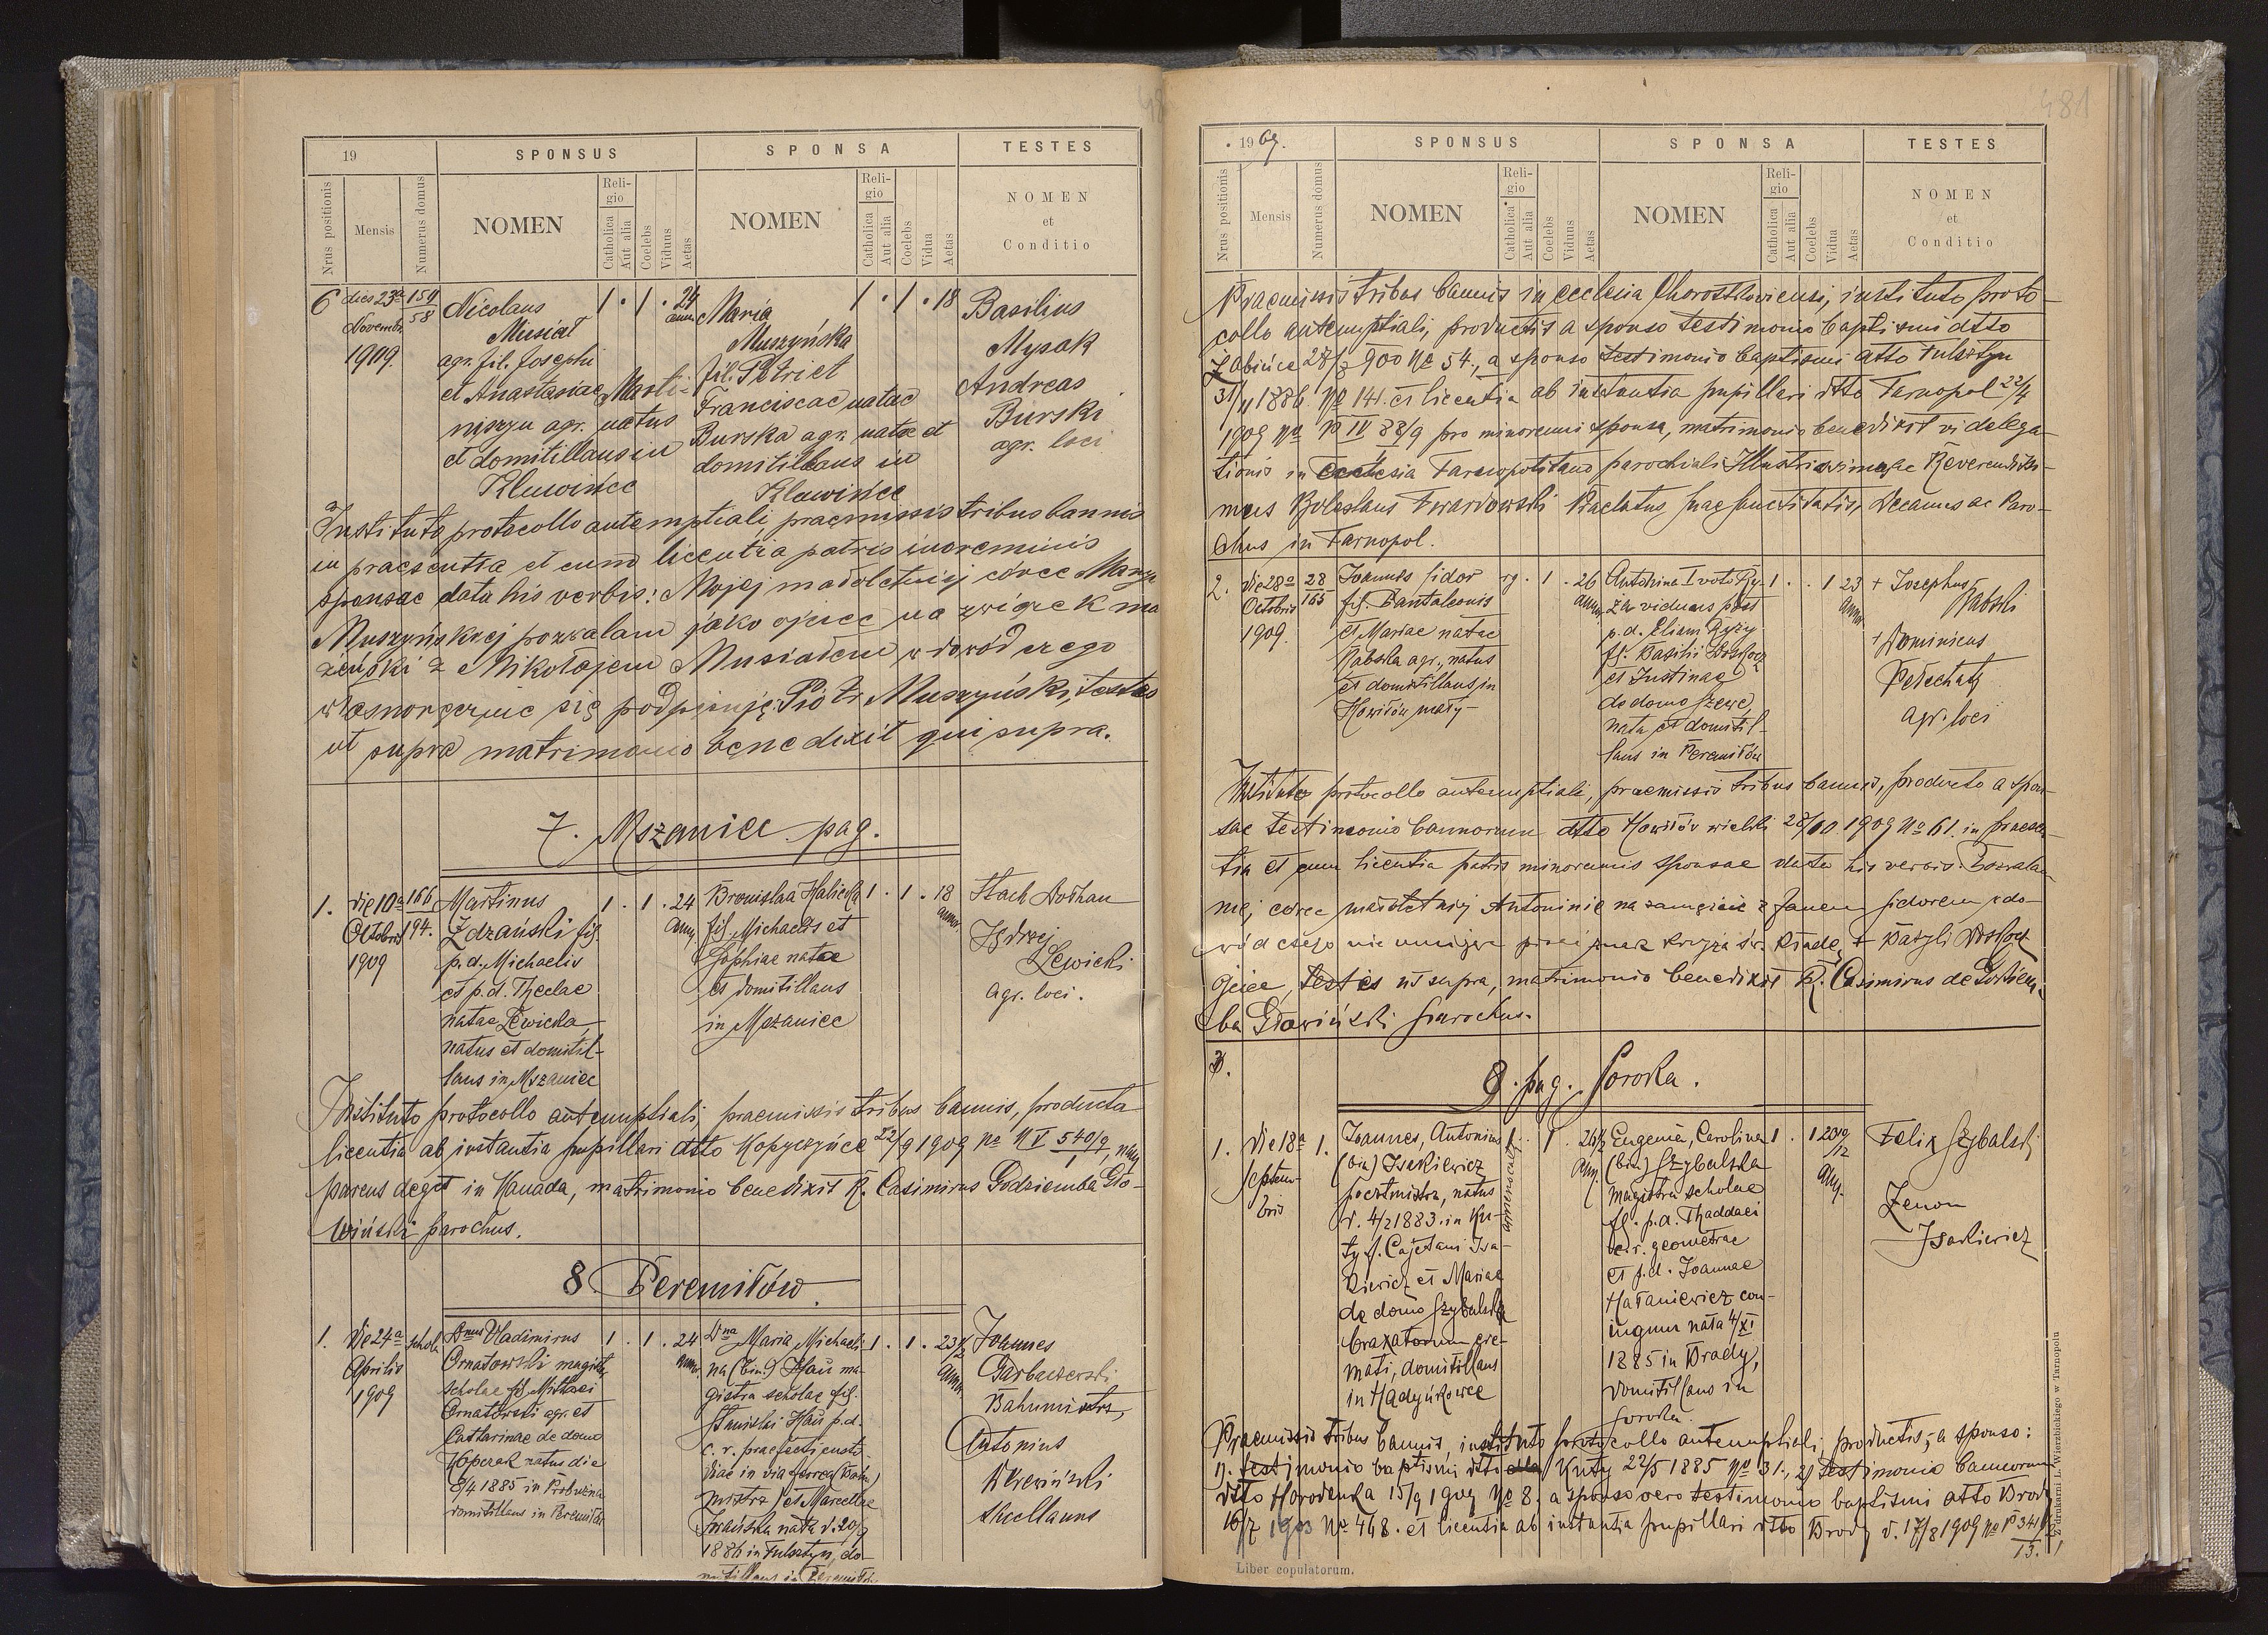 19
SPONSUS
SPONSA
TESTES
Nrus positionis
Mensis
Numerus domus
NOMEN
Religio
Catholica
Aut alia
Coelebs
Viduus
Aetas
NOMEN
Religio
Catholica
Aut alia
Coelebs
Vidua
Aetas
NOMEN
et
Conditio
6 dies 23a Novembr. 1909.
154
58
Nicolaus
Musiał
agr. fil. Josephi
et Anastasiae Marti-
niszyn agr. natus
et domitillans in
Kluwińce
1 . 1 . 24 ann.
Maria
Muszyńska
fil. Petri et
Franciscae natae
Burska agr. nata et
domitillans in
Kluwińce
1 . 1 . 18
Basilius
Mysak
Andreas
Burski
agr. loci
Instituto protocollo antenuptiali, praemissis tribus bannis
in praesentia et cum licentia patris minorennis
sponsae data his verbis: Mojej małoletniej córce Maryi
Muszyńskiej pozwalam jako ojciec na związek ma
żeński z Mikołajem Musiałem w dowód czego
własnoręcznie się podpisuję: Piotr Muszyński, testes
ut supra matrimonio benedixit qui supra.
7. Mszaniec pag.
1. Die 10a Octobris 1909
166
194.
Martinus
Zdzański fil.
p.d. Michaelis
et p.d. Theclae
natae Lewicka
natus et domitil-
lans in Mszaniec
1 . 1 . 24 ann.
Bronislaa Halicka
fil. Michaelis et
Sophiae natae
et domitillans
in Mszaniec
1 . 1 . 18 annor.
Stach Dothan
Jędrzej
Lewicki
agr. loci.
Instituto protocollo antenuptiali, praemissis tribus bannis, producta
licentia ab instantia pupillari dtto Kopyczyńce 22/9 1909 No N V 540/9, nam
parens deget in Kanada, matrimonio benedixit R. Casimirus Godziemba Gło-
wiński parochus.
8. Peremiłów.
1. Die 24a Aprilis 1909
schola
Dnus Vladimirus
Ornatowski magister
scholae fil. Mithaei
Ornatowski agr. et
Catharinae de domo
Kopczak natus die
8/4 1885 in Probużna
domitillans in Peremiłów
1 . 1 . 24 ann.
Dna Maria Michaeli-
na (bin.) Hau ma-
gistra scholae fil.
Stanislai Hau p.d.
c. r. praefecti custo-
diae in via ferrea (Bahn
mistrz) et Marcellae
nata d. 20/9
1886 in Fulsztyn, do-
mitillans in Peremiłów
1 . 1 . 23 1/2 annor.
Joannes
Garbaczewski
Bahnmistrz,
Antonius
Wiśniewski
1909.
SPONSUS
SPONSA
TESTES
Nrus positionis
Mensis
Numerus domus
NOMEN
Religio
Catholica
Aut alia
Coelebs
Viduus
Aetas
NOMEN
Religio
Catholica
Aut alia
Coelebs
Vidua
Aetas
NOMEN
et
Conditio
481
Praemissis tribus bannis in ecclesia Chorostkoviensi, instituto proto-
collo antenuptiali, productis a sponso testimonio baptismi dtto
Żabińce 28/3 900 No 54., a sponso testimonio baptismi dtto Fulsztyn
31/ 1886 No 141. et licentia ab instantia pupillari dtto Tarnopol 22/4
1909 No P IV 88/9 pro minorenni sponsa, matrimonio benedixit vi delega-
tionis in Ecclesia Tarnopolitana parochiali Illustrissimus ac Reverendissi-
mus Boleslaus Twardowski Praelatus Suae Sanctitatis, Decanus ac Paro-
chus in Tarnopol.
2. Die 28a Octobris 1909.
28
165
Joannes Sidor
fil. Pantaleonis
et Mariae natae
Rabska agr., natus
et domitillans in
Howiłów mały
rg. . 1 . 26 ann.
Antonina I voto Ry-
ży viduus post
p.d. Eliam Ryży
fil. Basilii Doskocz
et Justinae
de domo Szewc,
nata et domitil-
lans in Peremiłów
1 . . 1 23 annor.
+ Josephus
Rabski
+ Dominicus
Pełechaty
agr. loci
Instituto protocollo antenuptiali, praemissis tribus bannis, producto a spon-
sae testimonio bannorum dtto Howiłów wielki 28/10 1909 No 61. in praesen-
tia et cum licentia patris minorennis sponsae data his verbis: Pozwala-
mej córce małoletniej Antoninie na zamęście z Janem Sidorem w do-
wód czego nie umiejąc pisać znak krzyża św. kładę + Bazyli Doskocz
ojciec, testes ut supra, matrimonio benedixit R. Casimirus de Godziem-
ba Głowiński parochus.
3.
9. pag. Soroka.
1. Die 18a Septem-
bris
1.
Joannes, Antonius
(bin) Isakiewicz
pocztmistrz, natus
d. 4/2 1883. in Ku-
ty f. Cajetani Isa-
kiewicz et Mariae
de domo Szybalska
braxatorum cre-
mati, domitillans
in Hadyńkowce
1 . 1 . 26 1/2 ann.
armenorum
Eugenia, Carolina
(bin) Szybalska
magistra scholae
fil. p.d. Thaddaei
c. r. geometrae
et p.d. Joannae
Hałaniewicz con-
iugum nata 4/XI
1885 in Brody,
domitillans in
Soroka.
1 . 1 23 10/12 ann.
Felix Szybalski
Zenon
Isakiewicz
Praemissis tribus bannis, instituto protocollo antenuptiali, productis, a sponso:
1). testimonio baptismi dtto Kuty 22/5 1885 No 31., 2) testimonio bannorum
dtto Horodenka 15/9 1909 No 8. a sponso vero testimonio baptismi dtto Brody
16/7 1903 No 448. et licentia ab instantia pupillari dtto Brody d. 17/8 1909 No P 341/
13.
Liber copulatorum.
Z drukarni L. Wierzbickiego w Tarnopolu